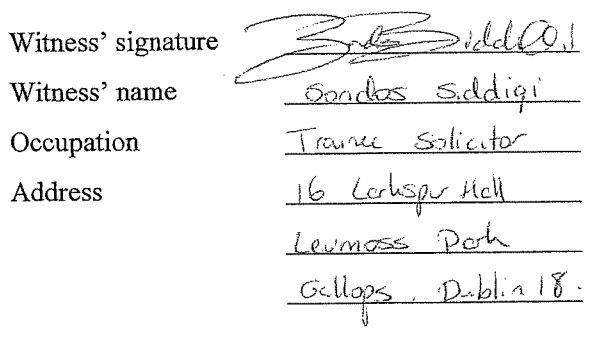 Witness' signature
Witness' name Sondos Siddiqi
Occupation Trainee Solicitor
Address 16 Larkspur Hall
Leumoss Park
Gallops, Dublin 18.